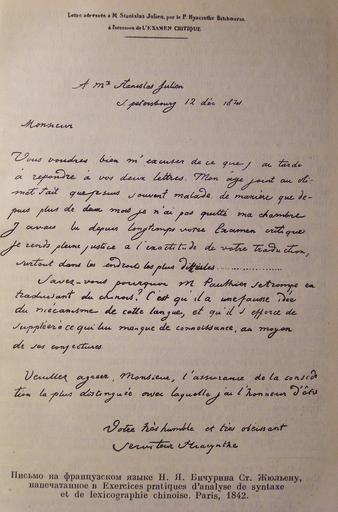 Lettre adressée à M. Stanislas Julien, par le P. Hyacinthe Bitchourin.
à l'occasion de L'EXAMEN CRITIQUE
A Mr Stanislas Julien
S petersbourg 12 déc 1841
Monsieur
Vous voudres bien m'excuser de ce que j'ai tardé
à repondre à vos deux lettres. Mon âge joint au cli-
mat fait que je suis souvent malade, de manière que de-
puis plus de deux mois je n'ai pas quitté ma chambre
J'avais lu depuis longtemps votre Examen critique
je rends pleine justice à l'exactitude de votre traduction,
surtout dans les endroits les plus difficiles..................
Savez-vous pourquoi M Pauthier se trompe en
traduisant du chinois? C'est qu'il a une fausse idée
du mécanisme de cette langue, et qu'il s'efforce de
suppléer à ce qui lui manque de connoissance, au moyen
de ses conjectures.
Veuillez agreer, Monsieur, l'assurance de la considé
tion la plus distinguée avec laquelle j'ai l'honneur d'être
Votre très humble et très obeissant
Serviteur Hyacynthe
Письмо на французском языке Н. Я. Бичурина Ст. Жюльену,
напечатанное в Exercices pratiques d'analyse de syntaxe
et de lexicographie chinoise. Paris, 1842.